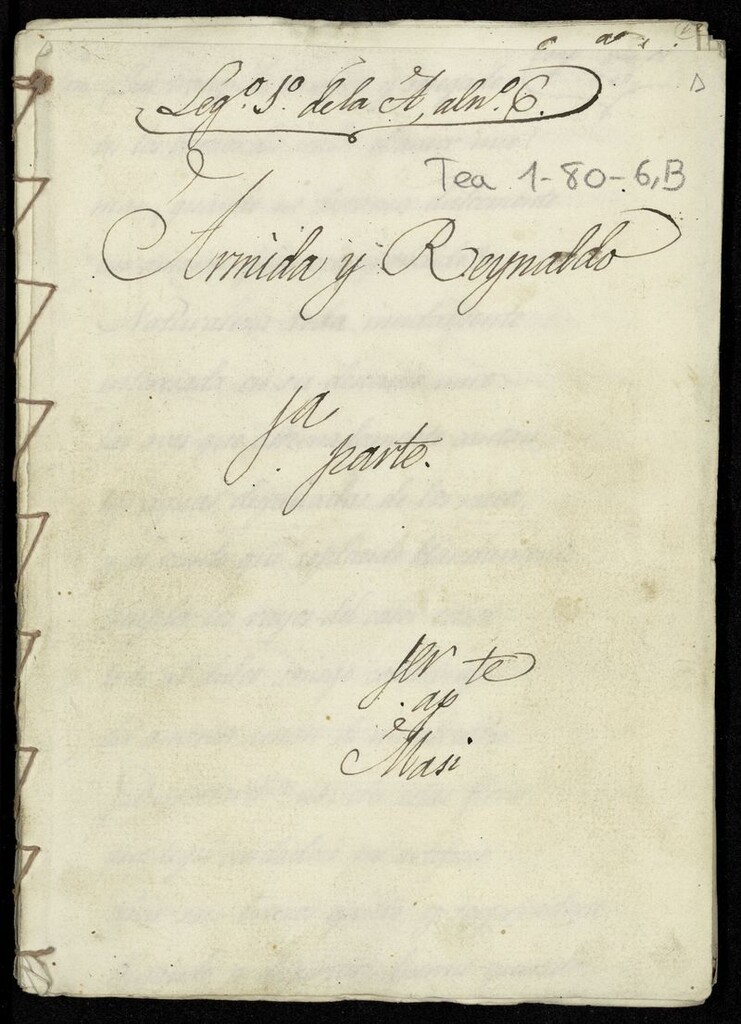 Leg.º 1.º de la A, al nº. 6.
Tea 1-80-6,B
Armida y Reynaldo
1ª
parte.
1er apte
Masi